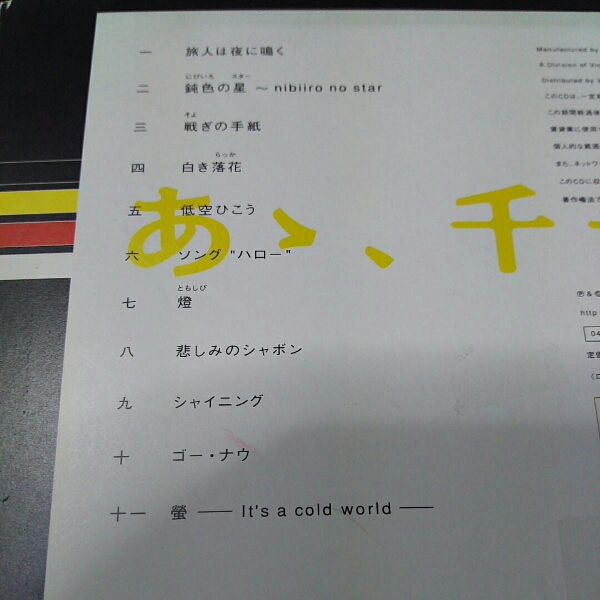 一 旅人は夜に鳴く
にびいろ スター
二 鈍色の星 ～ nibiiro no star
そよ
三 戦ぎの手紙
らっか
四 白き落花
五 低空ひこう
あゝ、チ
六 ソング "ハロー"
ともしび
七 燈
八 悲しみのシャボン
九 シャイニング
十 ゴー・ナウ
十一 螢 ── It's a cold world ──
Manufactured by
A Division of Vic
Distributed by V
このCDは、一定
この期間経過後
賃貸業に使用
個人的な範囲
また、ネットワー
このCDに収
著作権法
http:
04
定価